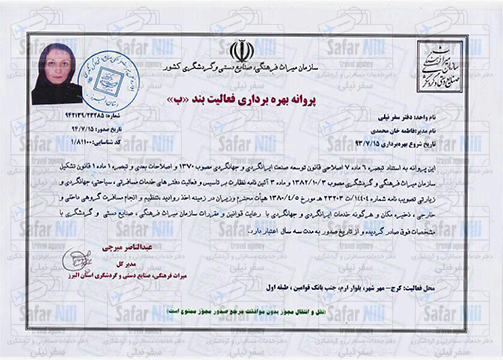 سازمان میراث فرهنگی، صنایع دستی و گردشگری کشور
پروانه بهره برداری فعالیت بند «ب»
نام واحد: دفتر سفر نیلی
نام مدیر: فاطمه خان محمدی
تاریخ شروع بهره‌برداری: ۹۳/۷/۱۵
شماره: ۹۴۲/۱۳۹/۲۳۲۸۵
تاریخ صدور: ۹۴/۷/۱۵
کد شناسایی: ۱/۸۱۱۰۰
این پروانه به استناد تبصره ۱ ماده ۷ اصلاحی قانون توسعه صنعت ایرانگردی و جهانگردی مصوب ۱۳۷۰ و اصلاحات بعدی و تبصره ۱ ماده ۱ قانون تشکیل
سازمان میراث فرهنگی و گردشگری مصوب ۱۳۸۲/۱۰/۲ و ماده ۳ آئین نامه نظارت بر تاسیس و فعالیت دفترهای خدمات مسافرتی، سیاحتی، جهانگردی و
زیارتی تصویب نامه شماره هـ مورخ ۱۳۸۰/۴/۵ هیأت محترم وزیران در زمینه اخذ روادید، تنظیم و انجام مسافرت گروهی داخلی و
خارجی، ذخیره مکان و هرگونه خدمات ایرانگردی و جهانگردی با رعایت قوانین و مقررات سازمان میراث فرهنگی، صنایع دستی و گردشگری با
مشخصات فوق صادر گردیده و از تاریخ صدور به مدت سه سال اعتبار دارد.
عبدالناصر میرچی
مدیر کل
میراث فرهنگی، صنایع دستی و گردشگری استان البرز
محل فعالیت: کرج – مهر شهر، بلوار ارم، جنب بانک قوامین، طبقه اول
نقل و انتقال مجوز بدون موافقت مرجع صدور مجوز ممنوع است
Safar Nili
travel agency
سفر نیلی